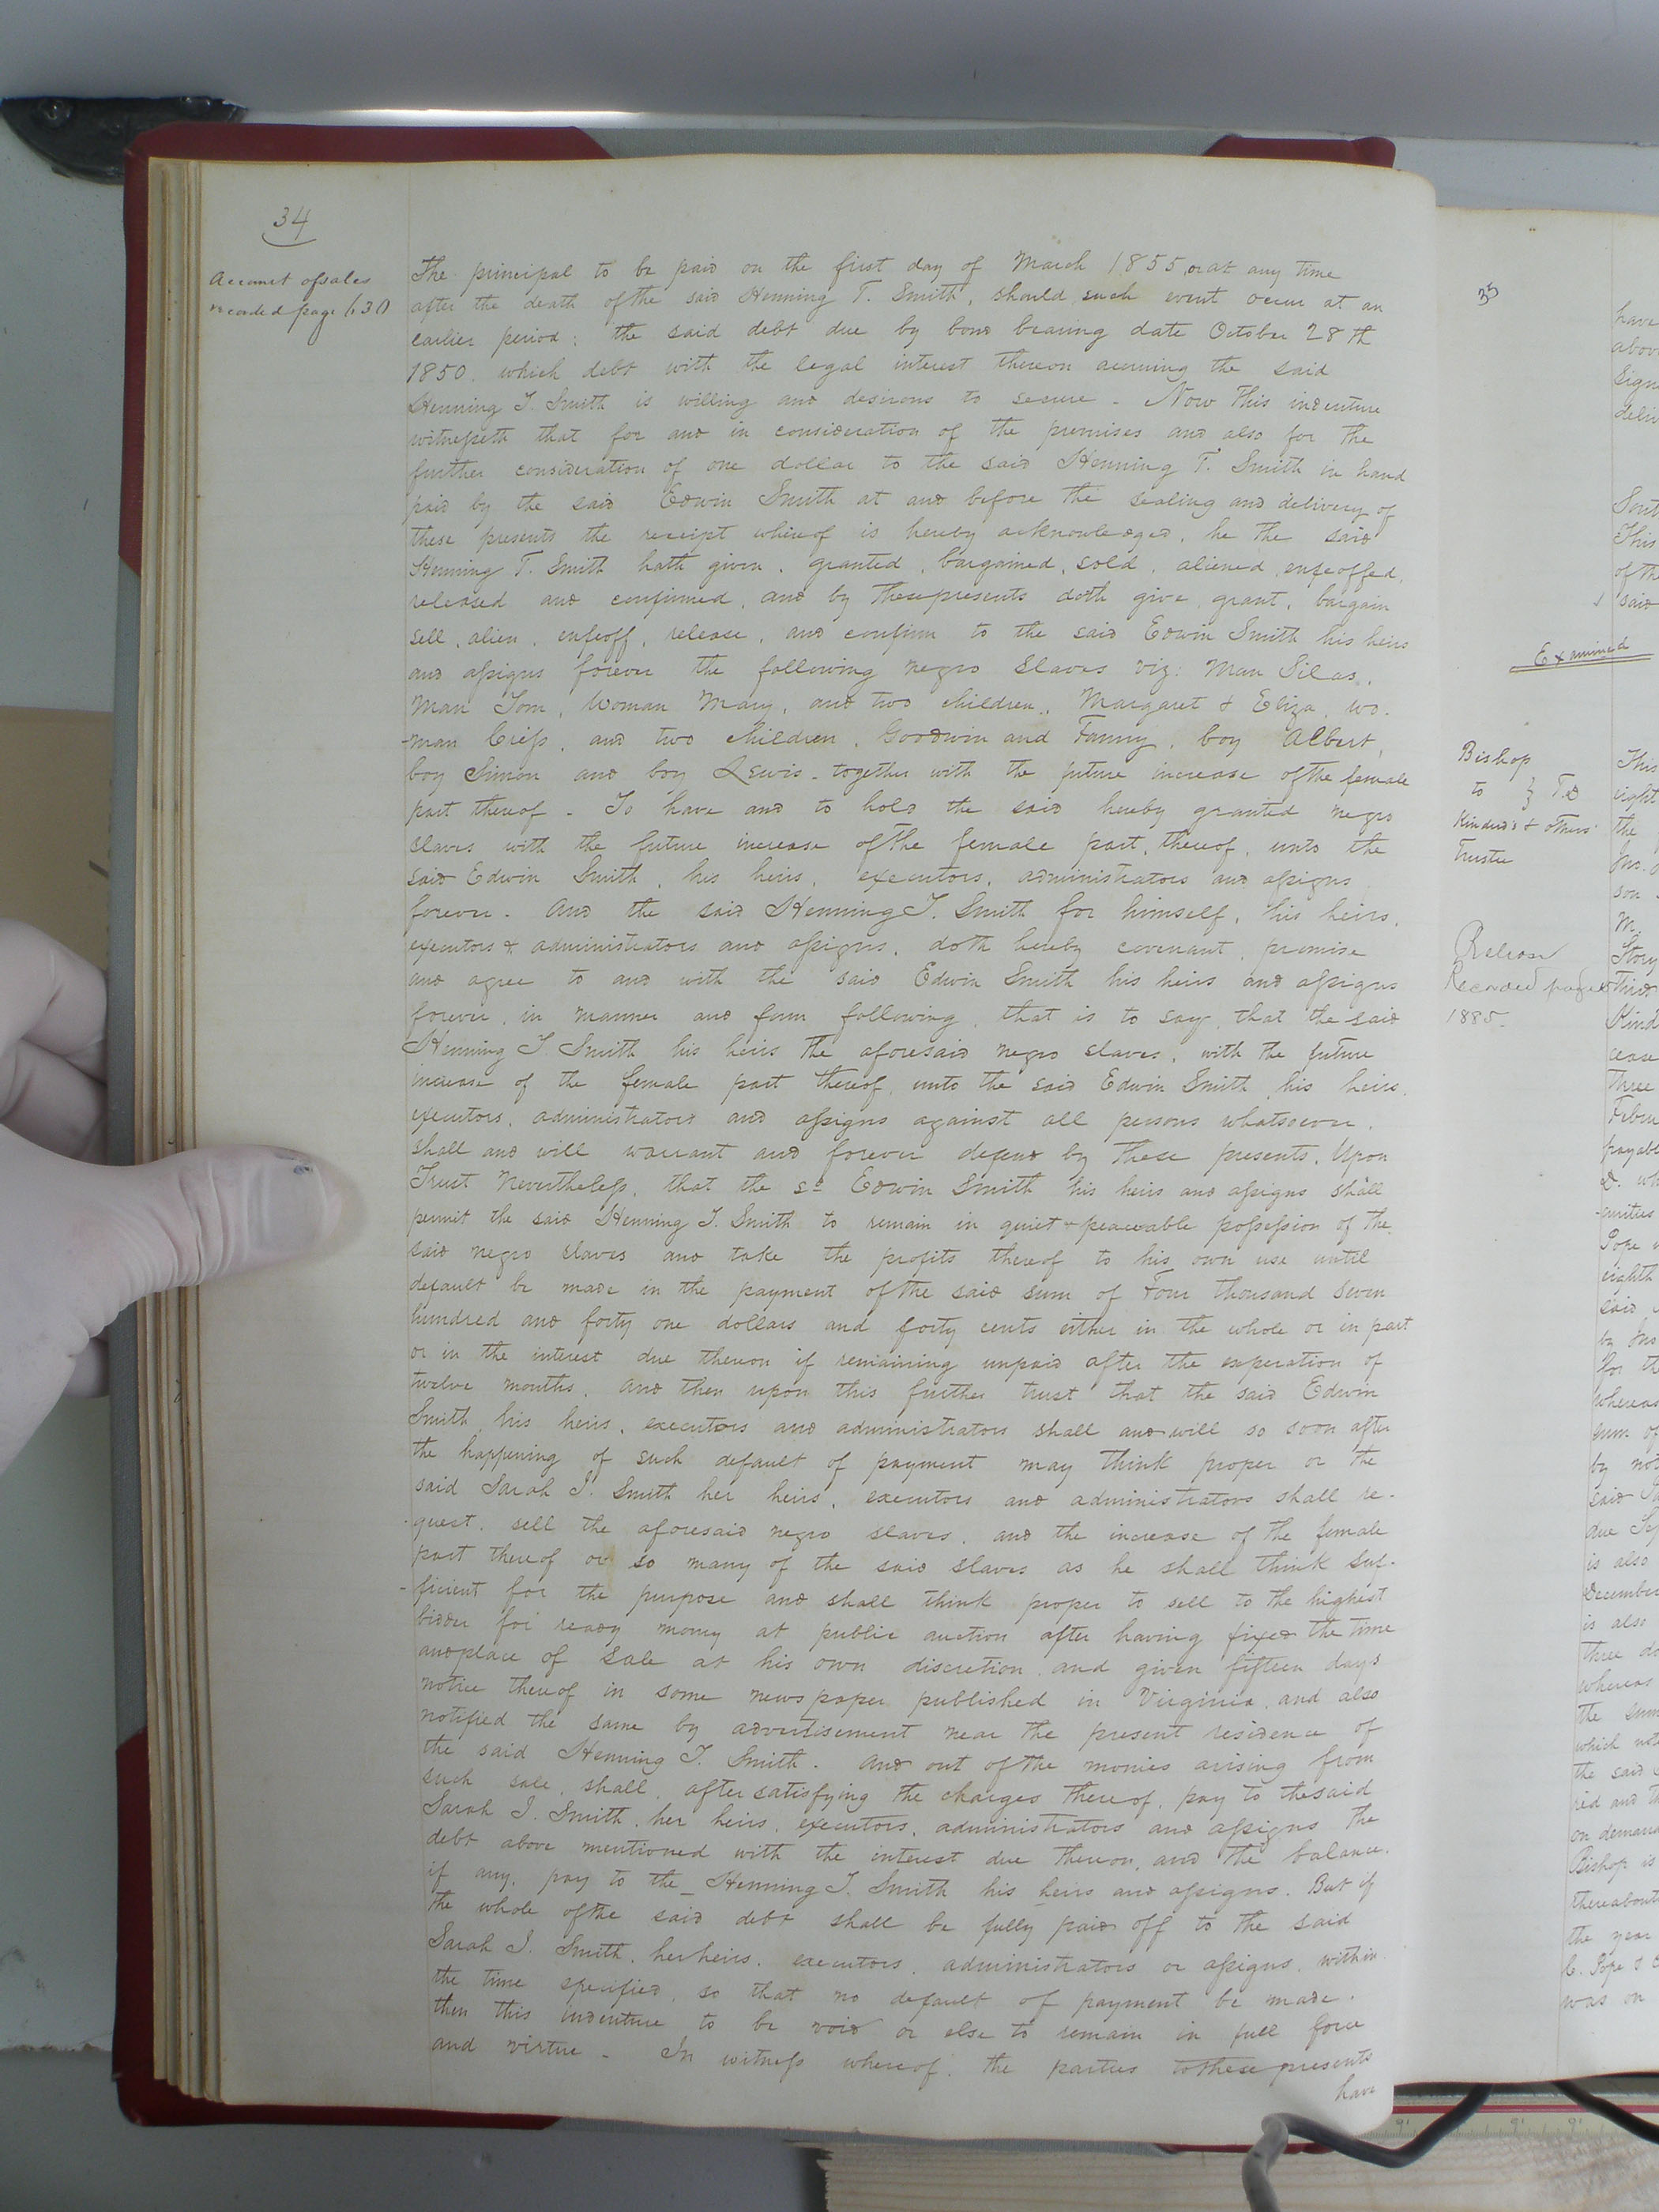 34
Account of sales
recorded page 630
The principal to be paid on the first day of March 1855, or at any time
after the death of the said Henning T. Smith, should such event occur at an
earlier period; the said debt due by bond bearing date October 28th
1850. which debt with the legal interest thereon accruing the said
Henning T. Smith is willing and desirous to secure - Now This indenture
witnesseth that for and in consideration of the premises and also for the
further consideration of one dollar to the said Henning T. Smith in hand
paid by the said Edwin Smith at and before the sealing and delivery of
these presents the receipt whereof is hereby acknowledged, he the said
Henning T. Smith hath given, granted, bargained, sold, aliened, enfeoffed,
released and confirmed, and by these presents doth give, grant, bargain
sell, alien, enfeoff, release, and confirm to the said Edwin Smith his heirs
and assigns forever the following negro slaves viz: Man Silas,
Man Tom, Woman Mary, and two children, Margaret & Eliza, wo-
-man Criss, and two children, Goodwin and Fanny, boy Albert,
boy Simon and boy Lewis - together with the future increase of the female
part thereof - To have and to hold the said hereby granted negro
slaves with the future increase of the female part, thereof, unto the
said Edwin Smith, his heirs, executors, administrators and assigns
forever. And the said Henning T. Smith for himself, his heirs,
executors & administrators and assigns, doth hereby covenant, promise
and agree to and with the said Edwin Smith his heirs and assigns
forever, in manner and form following, that is to say, that the said
Henning T. Smith his heirs the aforesaid negro slaves, with the future
increase of the female part thereof, unto the said Edwin Smith, his heirs,
executors, administrators and assigns against all persons whatsoever,
shall and will warrant and forever defend by these presents. Upon
Trust Nevertheless, that the sd Edwin Smith his heirs and assigns shall
permit the said Henning T. Smith to remain in quiet & peaceable possession of the
said negro slaves and take the profits thereof to his own use until
default be made in the payment of the said sum of Four thousand seven
hundred and forty one dollars and forty cents either in the whole or in part
or in the interest due thereon if remaining unpaid after the experation of
twelve months, and then upon this further trust that the said Edwin
Smith, his heirs, executors and administrators shall and will so soon after
the happening of such default of payment may think proper or the
said Sarah J. Smith her heirs, executors and administrators shall re-
-quest, sell the aforesaid negro slaves, and the increase of the female
part thereof or so many of the said slaves as he shall think suf-
-ficient for the purpose and shall think proper to sell to the highest
bidder for ready money at public auction after having fixed the time
and place of sale at his own discretion, and given fifteen days
notice thereof in some newspaper published in Virginia, and also
notified the same by advertisement near the present residence of
the said Henning T. Smith. And out of the monies arising from
such sale, shall, after satisfying the charges thereof, pay to the said
Sarah J. Smith, her heirs, executors, administrators and assigns the
debt above mentioned with the interest due thereon, and the balance,
if any, pay to the Henning T. Smith his heirs and assigns. But if
the whole of the said debt shall be fully paid off to the said
Sarah J. Smith, her heirs, executors, administrators or assigns, within
the time specified, so that no default of payment be made.
then this indenture to be void or else to remain in full force
and virtue - In witness whereof, the parties to these presents
have
35
Examined
Bishop
to } T.D
Kindred's & others
Trustee
Release
Recorded page
1885.
have
above
Sign
deliv
This
of the
said
This
eight
the
Jno.
son
M.
Story
third
Kind
cease
three
Febru
payabl
Pope
eighth
said
by Jno
for th
whereas
sum of
by not
said
due Sep
is also
December
is also
three do
whereas
the sum
which not
the said
on demand
Bishop is
thereabout
the year
C. Pope &
was on